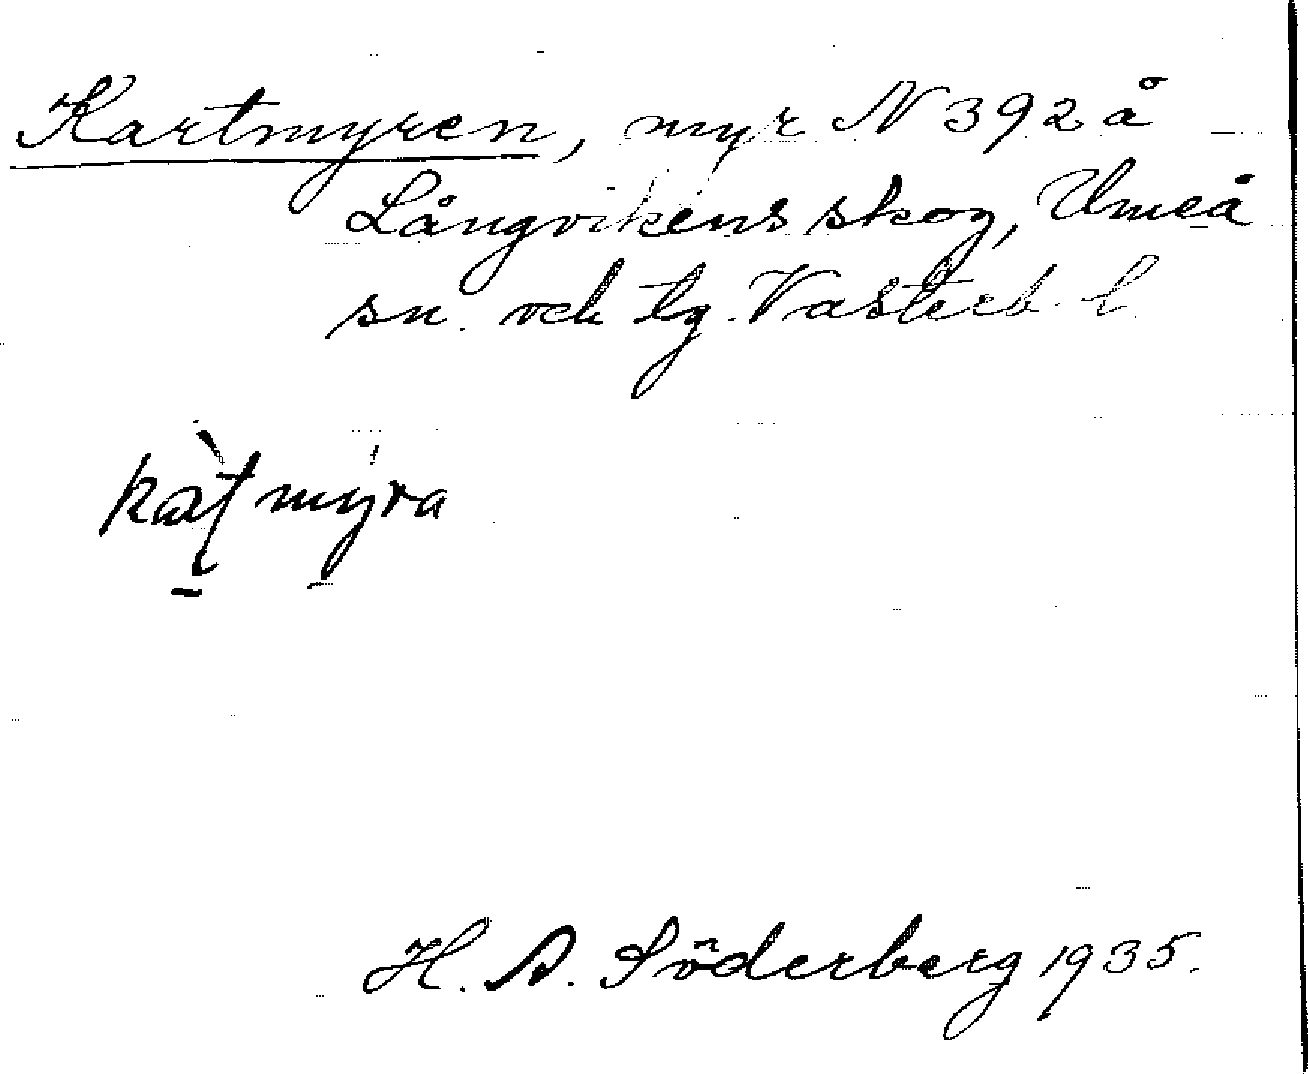 Kartmyren, myr N 392 å
Långvikens skog, Umeå
sn. och tg. Västerb. l.
myra
H. D. Söderberg 1935.